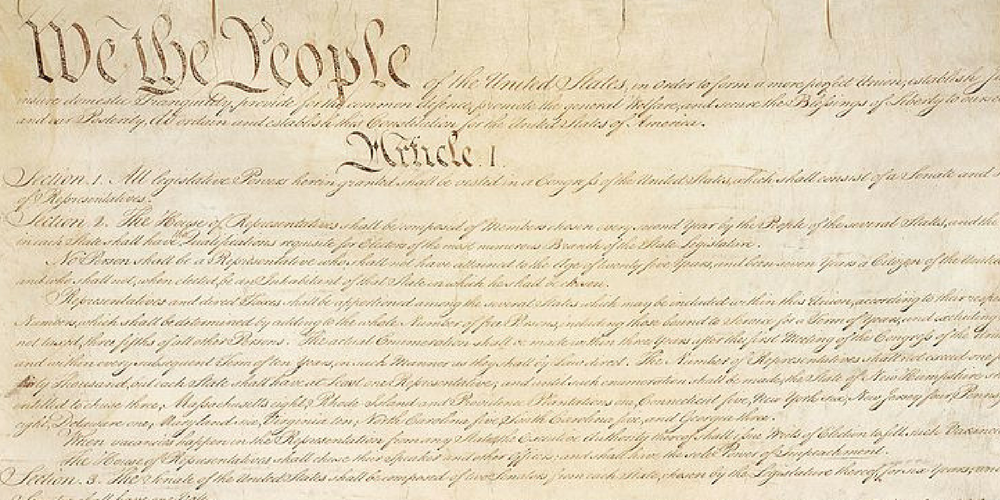 We the People of the United States, in Order to form a more perfect Union, establish J
insure domestic Tranquility, provide for the common defence, promote the general Welfare, and secure the Blessings of Liberty to ourse
and our Posterity, do ordain and establish this Constitution for the United States of America.
Article. I.
Section. 1. All legislative Powers herein granted shall be vested in a Congress of the United States, which shall consist of a Senate and
of Representatives.
Section. 2. The House of Representatives shall be composed of Members chosen every second Year by the People of the several States, and the
in each State shall have the Qualifications requisite for Electors of the most numerous Branch of the State Legislature.
No Person shall be a Representative who shall not have attained to the Age of twenty five Years, and been seven Years a Citizen of the United
and who shall not, when elected, be an Inhabitant of that State in which he shall be chosen.
Representatives and direct Taxes shall be apportioned among the several States which may be included within this Union, according to their respe
Numbers, which shall be determined by adding to the whole Number of free Persons, including those bound to Service for a Term of Years, and excluding
not taxed, three fifths of all other Persons. The actual Enumeration shall be made within three Years after the first Meeting of the Congress of the Uni
and within every subsequent Term of ten Years, in such Manner as they shall by Law direct. The Number of Representatives shall not exceed one f
thirty Thousand, but each State shall have at Least one Representative; and until such enumeration shall be made, the State of New Hampshire sh
entitled to chuse three, Massachusetts eight, Rhode Island and Providence Plantations one, Connecticut five, New York six, New Jersey four, Penns
eight, Delaware one, Maryland six, Virginia ten, North Carolina five, South Carolina five, and Georgia three.
When vacancies happen in the Representation from any State, the Executive Authority thereof shall issue Writs of Election to fill such Vacanci
The House of Representatives shall chuse their Speaker and other Officers; and shall have the sole Power of Impeachment.
Section. 3. The Senate of the United States shall be composed of two Senators from each State, chosen by the Legislature thereof, for six Years; and
Senator shall have one Vote.